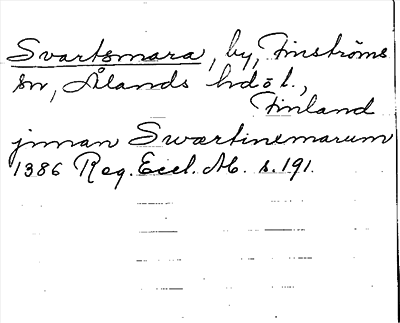 Svartsmara, by, Finströms
sn, Ålands hdöl.,
Finland
jnnan Swærtinemarum
1386 Reg. Eccl. Ab. s. 191.